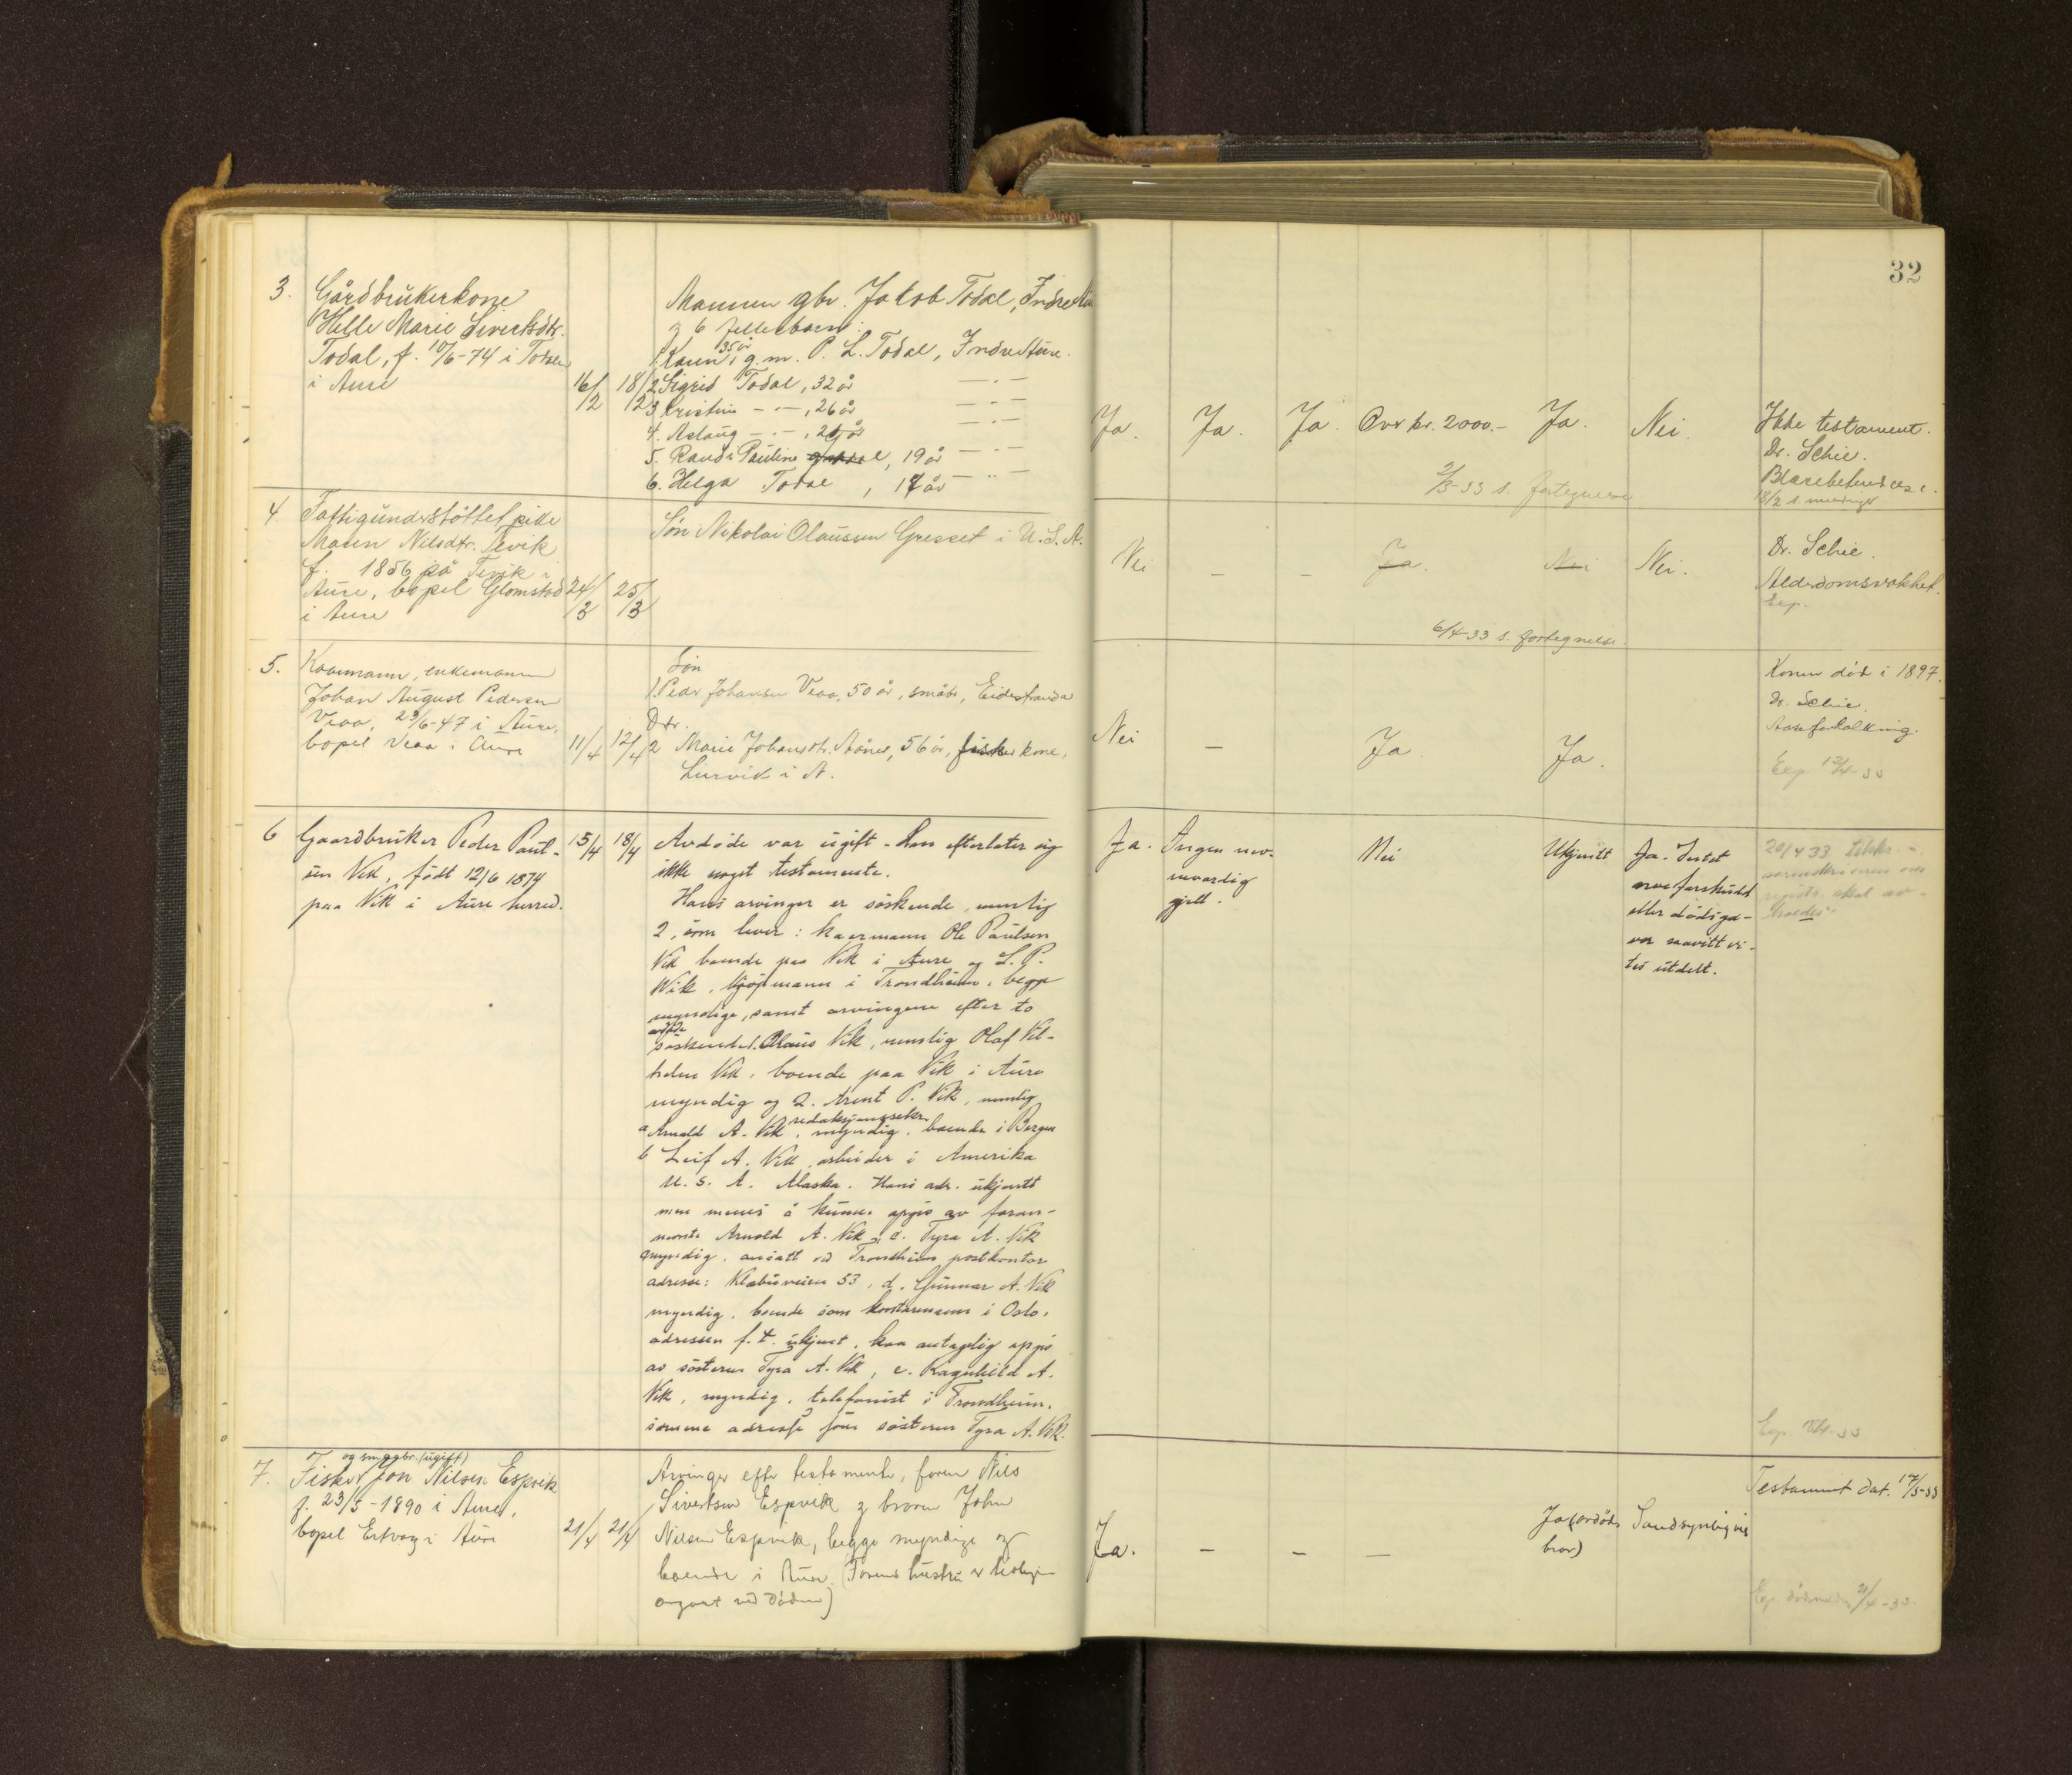 32
3. Gårdbrukerkone
Helle Marie Sivertsdtr.
Todal, f. 10/6-74 i Todalen
i Aure
16/2 18/2
Mannen gbr. Jakob Todal, Indre Au
og 6 fellesbarn:
1. Karen, 35 år g.m. P. L. Todal, Indre Aure.
2 Sigrid Todal, 32 år — . —
3 Kristine — . —, 26 år — . —
4. Aslaug — . —, år — . —
5. Randi Pauline, 19 år — . —
6. Helga Todal, 17 år — . —
Ja. Ja. Ja. Over kr. 2000.- Ja. Nei.
2/3-33 s. fortegnelse
Ikke testament.
Dr. Schie.
18/2 s.
4. Fattigunderstöttet pike
Maren Nilsdtr. Tevik
f. 1856 på Tevik i
Aure, bopel Glomstad
i Aure
24/3 25/3
Søn Nikolai Olaussen Gresset i U.S.A.
Nei – – Ja. Nei Nei.
6/4-33 s. fortegnelse.
Dr. Schie.
Alderdomssvakhet.
Exp.
5. Kaarmann, enkemann
Johan August Pedersen
Veaa, 23/6-47 i Aure,
bopel Veaa i Aure
11/4 12/4
Søn
1. Peder Johansen Veaa, 50 år, småbr, Eidestranda
Dtr.
2 Marie Johansdtr., 56 år, fisker kone,
Lurvik i A.
Nei – Ja Ja.
Konen död i 1897.
Dr. Schie.
Aareforkalkning.
Exp. 12/4-33
6 Gaardbruker Peder Paul-
sen Vik, födt 12/6 1874
paa Vik i Aure herred.
15/4 18/4
Avdöde var ugift - han efterlater sig
ikke noget testamente.
Hans arvinger er söskende, nemlig
2, som lever: kaarmann Ole Paulsen
Vik boende paa Vik i Aure og L. P.
Wik, kjöpmann i Trondheim, begge
myndige, samt arvingene efter to
avdöde
söskende 1. Olaus Vik, nemlig Olaf Vil-
helm Vik, boende paa Vik i Aure
myndig og 2. Arent P. Vik, nemlig
redaksjonssekr.
a Arnold A. Vik, myndig, boende i Bergen
b Leif A. Vik, arbeider i Amerika
U. S. A. Alaska. Hans adr. ukjent
men menes å kunne opgis av foran-
nevnte Arnold A. Vik, c. Tyra A. Vik
myndig, ansatt ved Trondheim postkontor
adresse: Klæbuveien 53, d. Gunnar A. Vik
myndig, boende som kontormann i Oslo,
adressen f. t. ukjent, kan antagelig opgis
av sösteren Tyra A. Vik, e. Ragnhild A.
Vik, myndig, telefonist i Trondheim,
samme adresse som sösteren Tyra A. Vik.
Ja. Ingen nev-
neverdig
gjeld.
Nei
Ukjent
Ja. Intet
arveforskudd
eller dödsga-
ver saavitt vi-
tes utdelt.
20/4 33
sorenskriveren
skal av-
holdes.
Exp. 18/4-33
7. og smaabr. (ugift)
Fisker Jon Nilsen Espvik
f. 23/5-1890 i Aure,
bopel Ertvåg i Aure
21/4 21/4
Arvinger efter testamente, faren Nils
Sivertsen Espvik og broren John
Nilsen Espvik, begge myndige og
boende i Aure. (Farens hustru er
ved döden)
Ja. – – –
Ja (avdöds
bror)
Sandsynligvis
Testament dat. 17/3-33
Exp. 21/4-33.